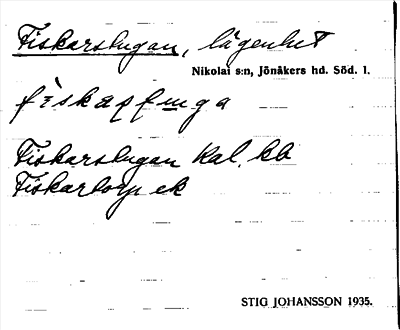 Fiskarstugan, lägenhet
Nikolai s:n, Jönåkers hd. Söd. l.
Fiskarstugan Kal. kb
Fiskartorp ek
STIG JOHANSSON 1935.